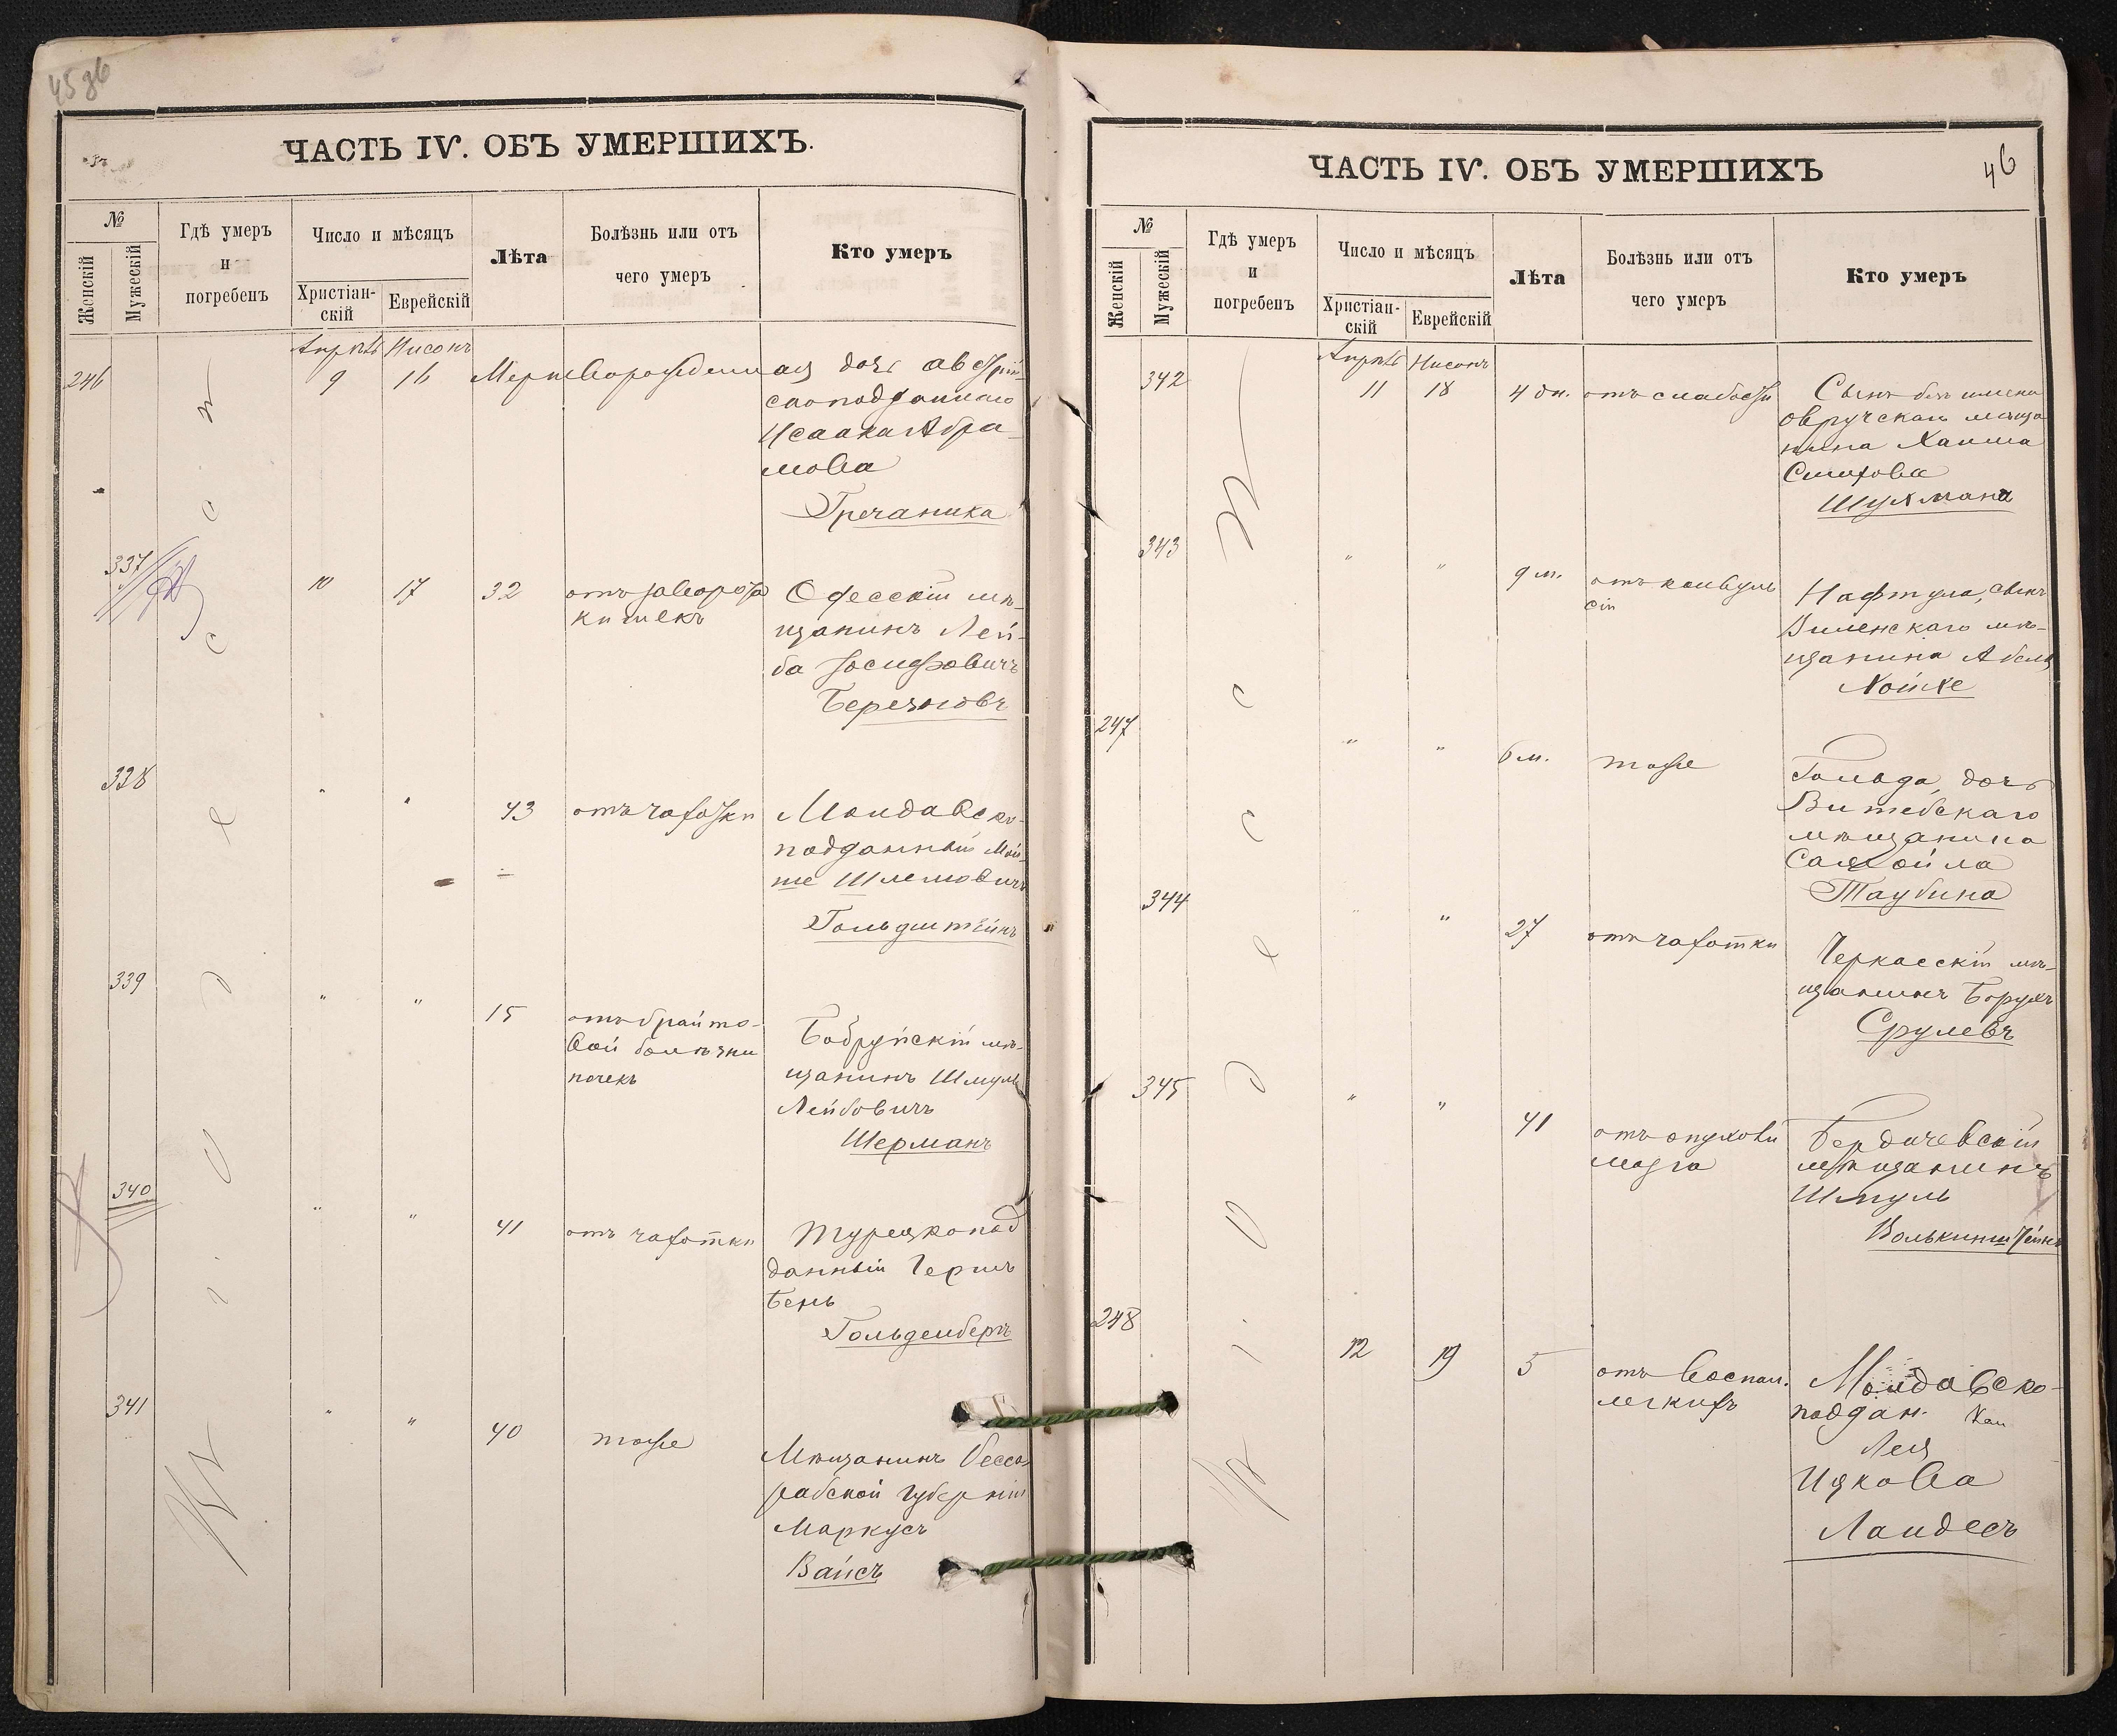 45 об
ЧАСТЬ IV. ОБЪ УМЕРШИХЪ.
№
Женскій
Мужескій
Гдѣ умеръ
и
погребенъ
Число и мѣсяцъ
Христіан-
скій
Еврейскій
Лѣта
Болѣзнь или отъ
чего умеръ
Кто умеръ
Въ Одессѣ
Апрѣль Нисонъ
246 9 16 Мертворожденная дочь австрій-
скоподданнаго
Исаака Абра-
мова
Гречаника
337 10 17 32 отъ заворота Одесскій мѣ-
кишекъ щанинъ Лей-
ба Іосифовичъ
Березновъ
338 " " 43 отъ чахотки Молдавско-
подданный Мой-
ше Шлемовичъ
Гольдштейнъ
339 " " 15 отъ брайто- Бобруйскій мѣ-
вой болѣзни щанинъ Шмуль
почекъ Лейбовичъ
Шерманъ
340 " " 41 отъ чахотки Турецкопод
данный Гершъ
Бень
Гольденбергъ
341 " " 40 тоже Мѣщанинъ Бесса-
рабской губерніи
Маркусъ
Вайсъ
ЧАСТЬ IV. ОБЪ УМЕРШИХЪ
46
№
Женскій
Мужескій
Гдѣ умеръ
и
погребенъ
Число и мѣсяцъ
Христіан-
скій
Еврейскій
Лѣта
Болѣзнь или отъ
чего умеръ
Кто умеръ
Въ Одессѣ
Апрѣль Нисонъ
342 11 18 4 дн. отъ слабости Сынъ безъ имени
овручскаго мѣща
нина Хаима
Шухмана
343 " " 9 м. отъ конвуль Нафтула, сынъ
сіи Виленскаго мѣ-
щанина Абеля
Нотке
247 " " 6 м. тоже Гольда, дочь
Витебскаго
мѣщанина
Самойла
Таубина
344 " " 27 отъ чахотки Черкасскій мѣ-
щанинъ Борухъ
Срулевъ
345 " " 41 отъ опухоли Бердичевскій
мозга мѣщанинъ
Шмуль
Волькинштейнъ
248 12 19 5 отъ воспал. Молдавско-
легкихъ поддан. Хая
Лея
Ицкова
Ландесъ